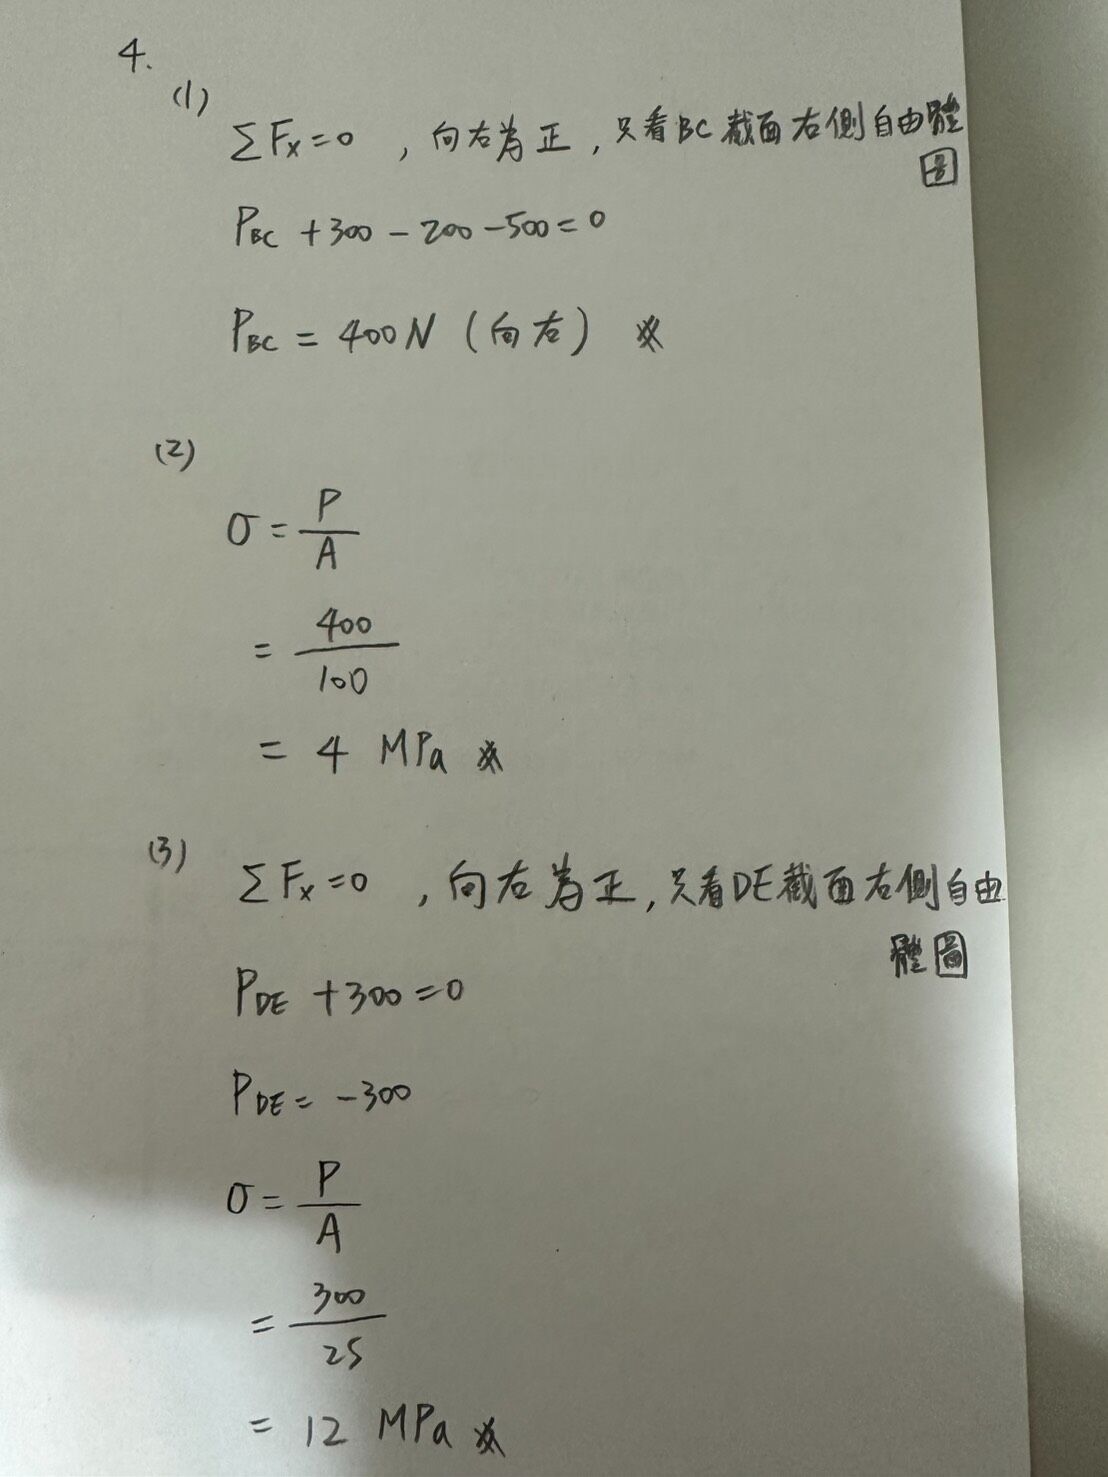 4.
(1)
ΣFx=0 , 向右為正, 只看BC截面右側自由體
圖
PBC +300 - 200 - 500 = 0
PBC = 400N (向右) ※
(2)
σ = P/A
= 400/100
= 4 MPa ※
(3)
ΣFx=0 , 向右為正, 只看DE截面右側自由
體圖
PDE +300=0
PDE = -300
σ = P/A
= 300/25
= 12 MPa ※